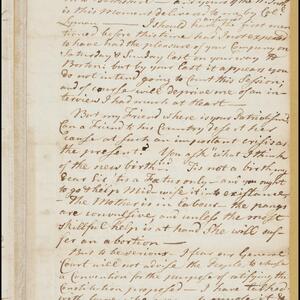 is this moment delivered to me by Col.
Lyman — I should
tioned before this time had I not expected
to have had the pleasure of your Company on
Saturday & Sunday last on your way to
Boston, but by your last it appears you
do not intend going to Court this Session;
and of course will deprive me of an in-
terview I had much at Heart —
But my Friend where is your Patriotism?
Can a Friend to his Country desert her
Cause at such an important crisis as
the present? You ask "what I think
of the new birth": Tis not a birth my
dear Sir, 'tis a Foetus only — and you ought
to go & help Midwife it into existence
The Mother is in labour — the pangs
are convulsive and unless the most
skillful help is at hand She will suf-
fer an abortion —
But to be serious — I fear our General
Court will not address the People to choose a
Convention for the purpose of ratifying the
Constitution proposed — I have talked